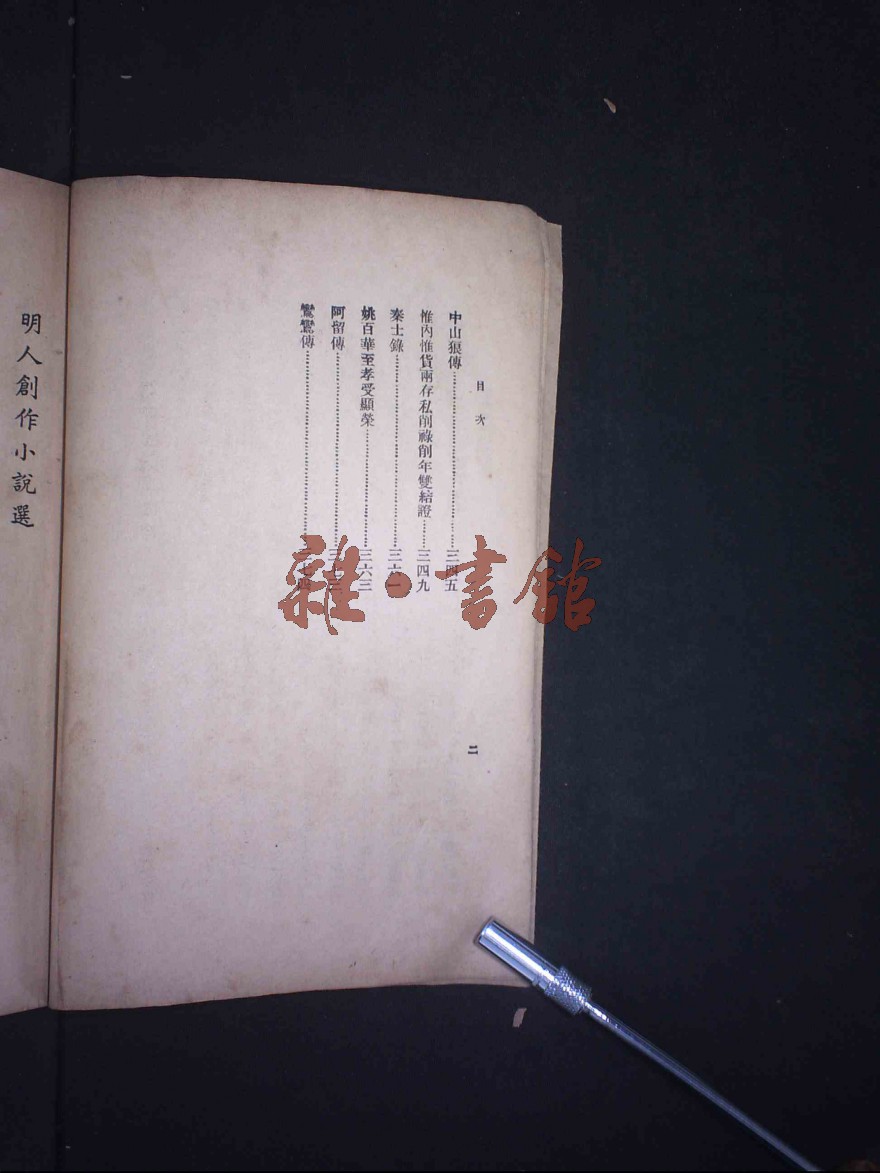 目次
中山狼傳……三四五
惟內惟貨兩存私削祿削年雙結證……三四九
秦士錄……三六一
姚百華至孝受顯榮……三六三
阿留傳……三七三
鸞鸞傳……
二
明人創作小說選
雜·書館